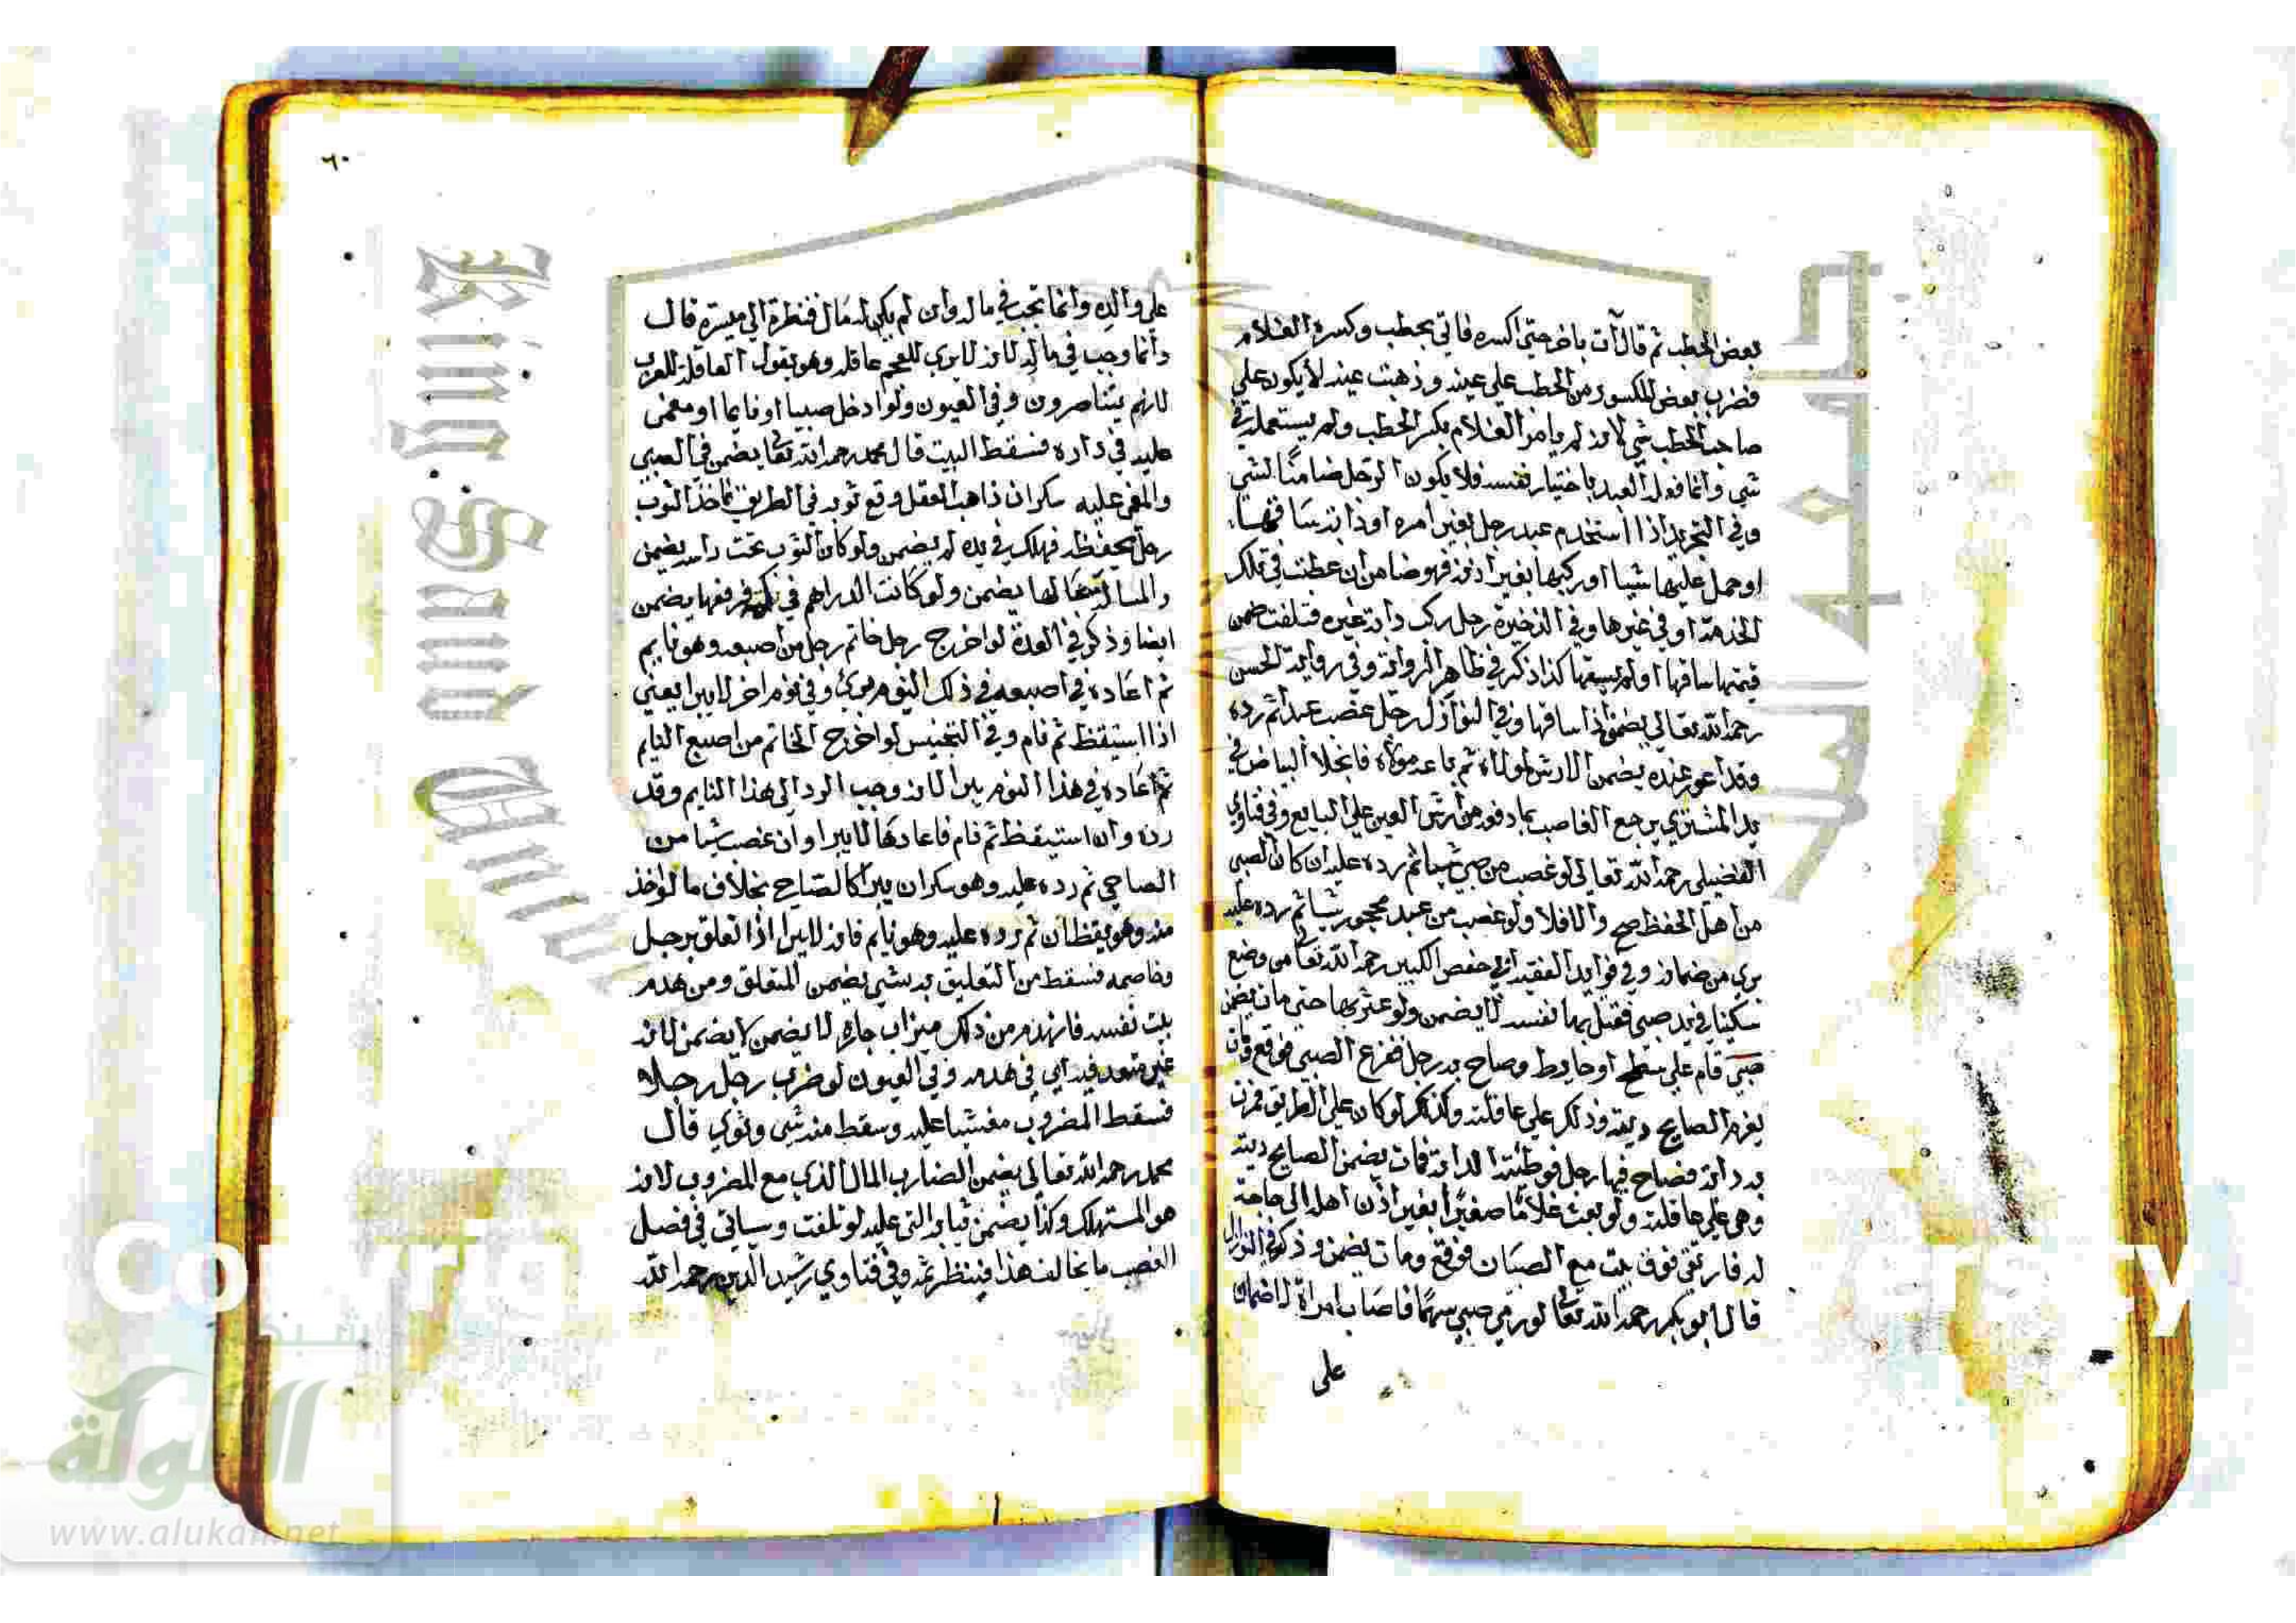 بعض الحطب ثم قال آت باخر حتى اكسره فاتي بحطب وكسره الغلام
فضرب بعض المكسور من الحطب على عينه وذهبت عينه لا يكون على
صاحب الحطب شي لانه لم يامر الغلام بكسر الحطب ولم يستعمله في
شي وانما فعله العبد باختيار نفسه فلا يكون الرجل ضامنا لشي
وفي التجريد اذا استخدم عبد رجل بغير امره او دابته ساقها
او حمل عليها شيا او ركبها بغير اذنه فهو ضامن ان عطبت في تلك
الخدمة او في غيرها وفي الذخيرة رجل ركب دابة غيره فتلفت ضمن
قيمتها ساقها او لم يسقها كذا ذكر في ظاهر الرواية وفي رواية الحسن
رحمه الله تعالى يضمن اذا ساقها وفي النوازل رجل غصب عبدا ثم رده
وقد اعور عنده يضمن الارش لمولاه ثم باعه مولاه فانجلا البياض في
يد المشتري يرجع الغاصب بما دفعه من ارش العين على البايع وفي فتاوي
الفضيلي رحمه الله تعالى لو غصب من صبي شيا ثم رده عليه ان كان الصبي
من اهل الحفظ صح والا فلا ولو غصب من عبد محجور شيا ثم رده عليه
برى من ضمانه وفي فوايد الفقيه ابي حفص الكبير رحمه الله تعا من وضع
سكينا في يد صبي فقتل بها نفسه لا يضمن ولو عثر بها حتى مات يضمن
صبي قام على سطح او حايط وصاح به رجل ففزع الصبي فوقع ومات
يغرم الصايح ديته وذلك على عاقلته وكذلك لو كان على الطريق فمرت
به دابة فصاح فيها رجل فوطئته الدابة فمات يضمن الصايح ديته
وهي على عاقلته ولو بعث غلاما صغيرا بغير اذن اهله الى حاجة
له فارتقى فوق بيت مع الصبيان فوقع ومات يضمن وذكر في النوازل
قال ابو بكر رحمه الله تعا لو رمى صبي سهما فاصاب امراة لا ضمان
على
٦٠
على والده وانما تجب في ماله وان لم يكن له مال فنظرة الى ميسرة قال
وانما وجب في ماله لانه لا يرى للعجم عاقلة وهو يقول العاقلة للعرب
لانهم يتناصرون وفي العيون ولو ادخل صبيا او نايما او مغمى
عليه في داره فسقط البيت قال محمد رحمه الله تعا يضمن في الصبي
والمغمى عليه سكران ذاهب العقل وقع ثوبه في الطريق فاخذ الثوب
رجل ليحفظه فهلك في يده لم يضمن ولو كان الثوب تحت راسه يضمن
والمسالة بحالها يضمن ولو كانت الدراهم في كمه فرفعها يضمن
ايضا وذكر في العدة لو اخرج رجل خاتم رجل من اصبعه وهو نايم
ثم اعاده في اصبعه في ذلك النوم برئ وفي نوم اخر لا يبرا يعني
اذا استيقظ ثم نام وفي التجنيس لو اخرج الخاتم من اصبع النايم
ثم اعاده في هذا النوم يبرا لانه وجب الرد الى هذا النايم وقد
رده وان استيقظ ثم نام فاعادها لا يبرا وان غصب شيا من
الصاحي ثم رده عليه وهو سكران يبرا كالصاحي بخلاف ما لو اخذ
منه وهو يقظان ثم رده عليه وهو نايم فانه لا يبرا اذا تعلق برجل
وخاصمه فسقط من التعليق به شي يضمن المتعلق ومن هدم
بيت نفسه فانهدم من ذلك ميزاب جاره لا يضمن لا يضمن لانه
غير متعد فيه اي في هدمه وفي العيون لو ضرب رجل رجلا
فسقط المضروب مغشيا عليه وسقط منه شي وتوي قال
محمد رحمه الله تعالى يضمن الضارب المال الذي مع المضروب لانه
هو المستهلك وكذا يضمن ثيابه التي عليه لو تلفت وسياتي في فصل
الغصب ما يخالف هذا فينظر ثمه وفي فتاوي رشيد الدين رحمه الله
King Saud Univ
جامعة الملك
شبكة
الألوكة
www.alukah.net